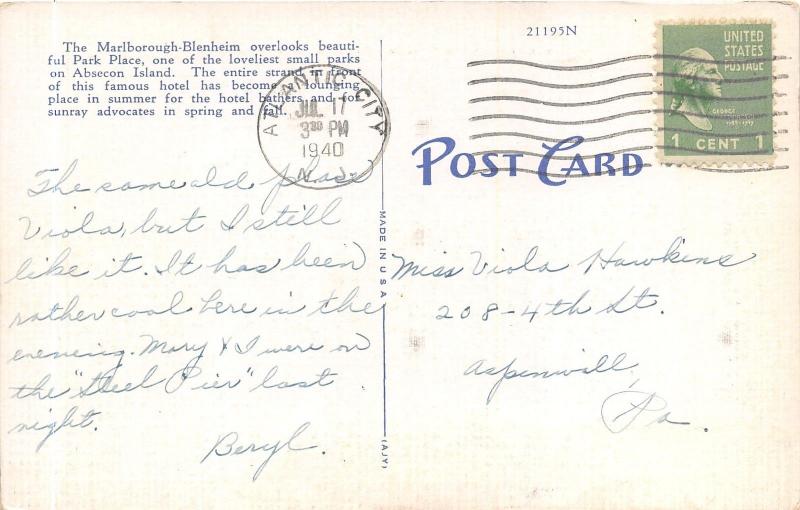 21195N
The Marlborough-Blenheim overlooks beauti-
ful Park Place, one of the loveliest small parks
on Absecon Island. The entire strand in front
of this famous hotel has become a lounging
place in summer for the hotel bathers and for
sunray advocates in spring and fall.
ATLANTIC CITY
JUL 17
3 30 PM
1940
N. J.
UNITED
STATES
POSTAGE
GEORGE
WASHINGTON
1789-1797
1 CENT 1
POST CARD
The same old place
Viola, but I still
like it. It has been
rather cool here in the
evening. Mary & I were on
the "Steel Pier" last
night.
Beryl.
MADE IN U S A
(AJY)
Miss Viola Hawkins
208-4th St.
Aspinwall,
Pa.